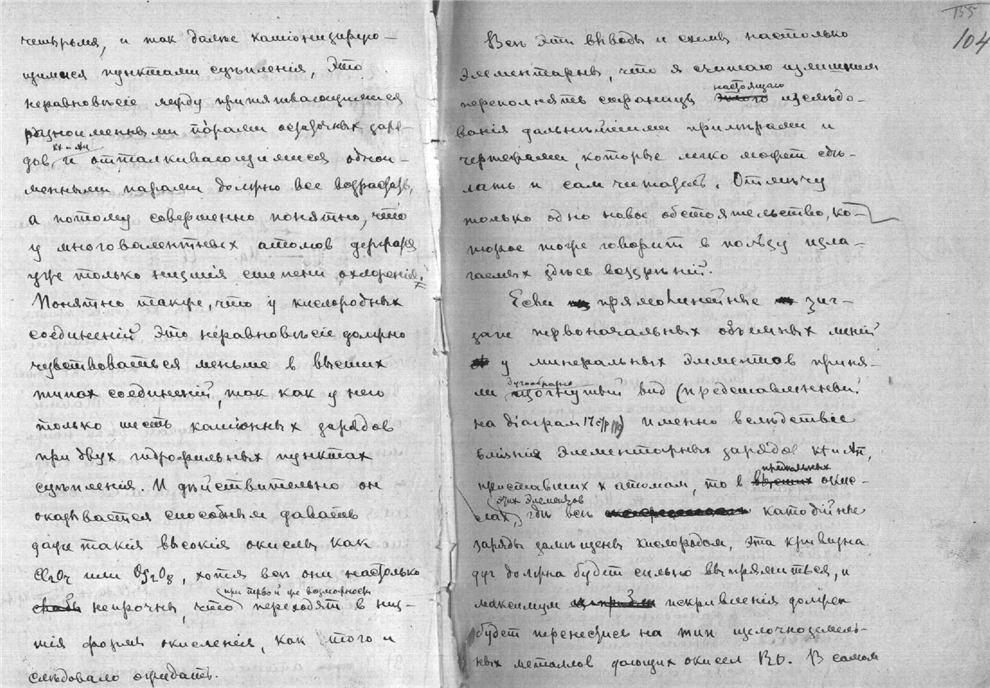 четырьмя, и так далее катіонизирую-
щимися пунктами сцѣпленія, Это
неравновѣсіе между притягивающимися
разноименными парами осадочных заря-
дов Kt и An и отталкивающимися одной-
менными парами должно все возрастать,
а потому совершенно понятно, что
у многовалентных атомов держатся
уже только низшія степени охлоренія.
Понятно также, что у кислородных
соединеній это неравновѣсіе должно
чувствоваться меньше в высших
типах соединеній, так как у него
только шесть катіонных зарядов
при двух гидрофильных пунктах
сцѣпленія. И дѣйствительно он
оказывается способным давать
даже такія высокія окислы, как
Cl₂O₇ или OsO₈, хотя всѣ они настолько
непрочны, что при первой же возможности переходят в низ-
шія формы окисленія, как того и
слѣдовало ожидать.
155
104
Всѣ эти выводы и схемы настолько
элементарны, что я считаю излишним
переполнять страницы настоящаго изслѣдо-
ванія дальнѣйшими примѣрами и
чертежами, которые легко может сдѣ-
лать и сам читатель. Отмѣчу
только одно новое обстоятельство, ко-
торое тоже говорит в пользу изла-
гаемых здѣсь воззрѣній.
Если прямолинейные зиг-
заги первоначальных объемных линій
у минеральных элементов приня-
ли дугообразно вид (представленный
на діаграм 17 стр) именно вслѣдствіе
вліянія элементарных зарядов Kt и An,
приставших к атомам, то в предѣльных окис-
лах этих элементов, гдѣ всѣ катодійные
заряды замѣщены кислородом, эта кривизна
дуг должна будет сильно выпрямиться, и
максимум искривленія должен
будет перенестись на тип щелочноземель-
ных металлов дающих окисел RO. В самом